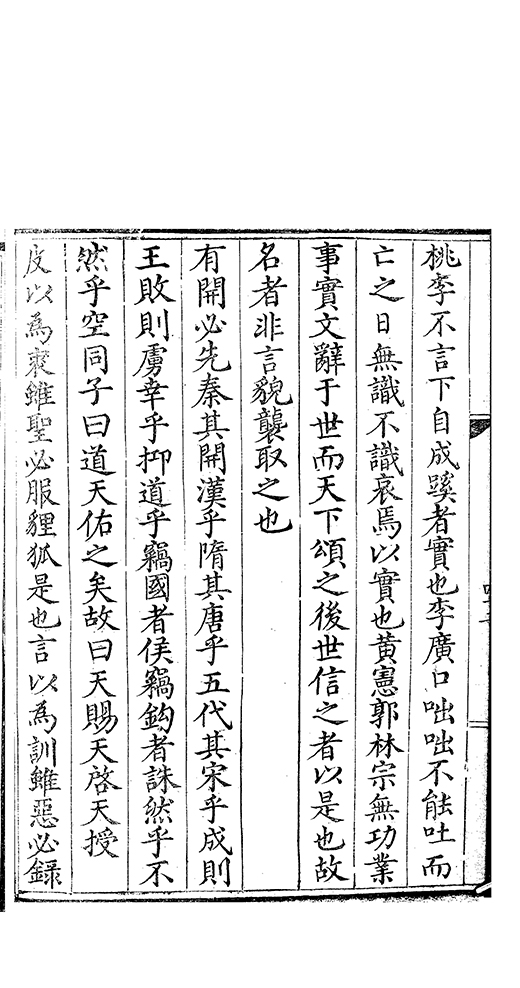 桃李不言下自成蹊者實也李廣口咄咄不能吐而
亡之日無識不識哀焉以實也黃憲郭林宗無功業
事實文辭于世而天下頌之後世信之者以是也故
名者非言貌襲取之也
有開必先秦其開漢乎隋其唐乎五代其宋乎成則
王敗則虜幸乎抑道乎竊國者侯竊鈎者誅然乎不
然乎空同子曰道天佑之矣故曰天賜天啓天授
皮以為裘雖聖必服貍狐是也言以為訓雖惡必録